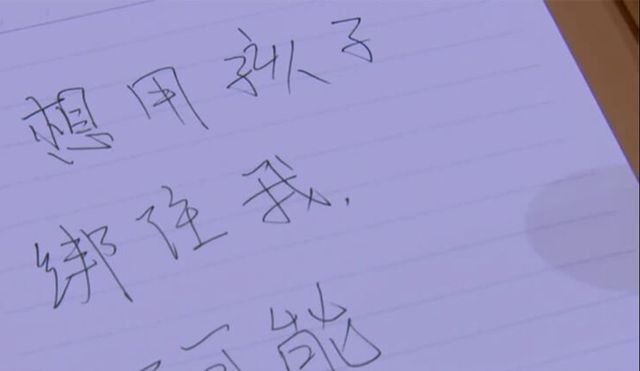 想用孩子
绑住我,
可能